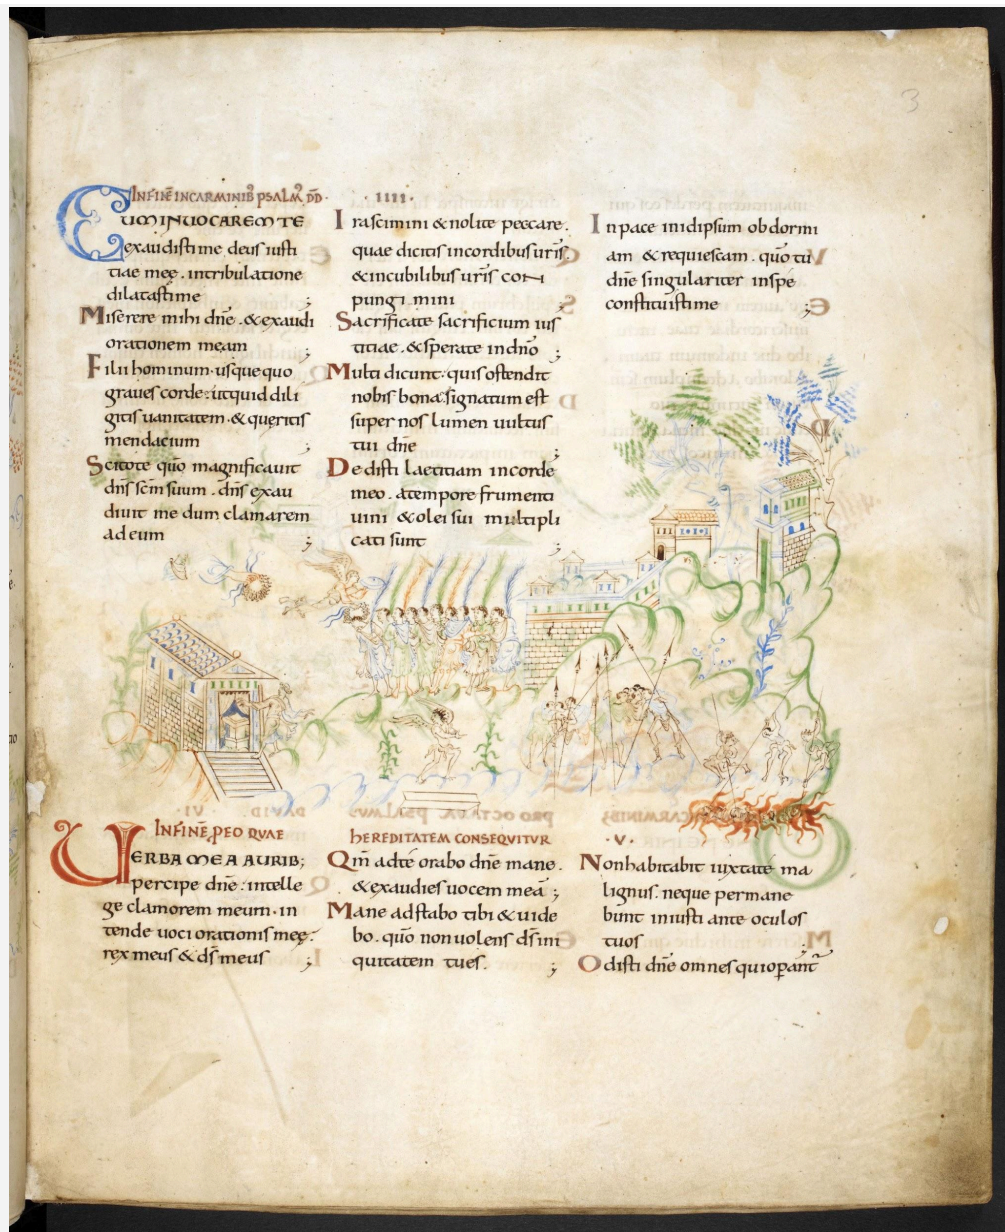 3
INFINE INCARMINIB; PSALM' DD · · IIII ·
CUM INUOCAREM TE
exaudistime deus iusti
tiae meę . intribulatione
dilatastime ;
Miserere mihi dnē . & exaudi
orationem meam ;
Filii hominum . usquequo
graues corde : utquid dili
gitis uanitatem . & quęritis
mendacium ;
Scitote qūo magnificauit
dn̄s sc̄m suum . dn̄s exau
diuit me dum clamarem
ad eum ;
Irascimini & nolite peccare .
quae dicitis incordibus ur̄is .
& incubilibus ur̄is con
pungimini ;
Sacrificate sacrificium ius
titiae . & sperate indn̄o ;
Multi dicunt . quis ostendit
nobis bona . signatum est
super nos lumen uultus
tui dn̄e ;
Dedisti laetitiam incorde
meo . atempore frumenti
uini & olei sui multipli
cati sunt ;
In pace inidipsum obdormi
am & requiescam . qūo tu
dn̄e singulariter inspe
constituistime ;
INFINĒ, PEO QUAE HEREDITATEM CONSEQUITUR · V ·
UERBA MEA AURIB;
percipe dn̄e : intelle
ge clamorem meum . in
tende uoci orationis meę .
rex meus & d̄s meus ;
Qm̄ adte orabo dn̄e mane .
& exaudies uocem meā ;
Mane adstabo tibi & uide
bo . qūo non uolens d̄s ini
quitatem tu es . ;
Non habitabit iuxta te ma
lignus . neque permane
bunt iniusti ante oculos
tuos ;
Odisti dn̄e omnes qui opant̄